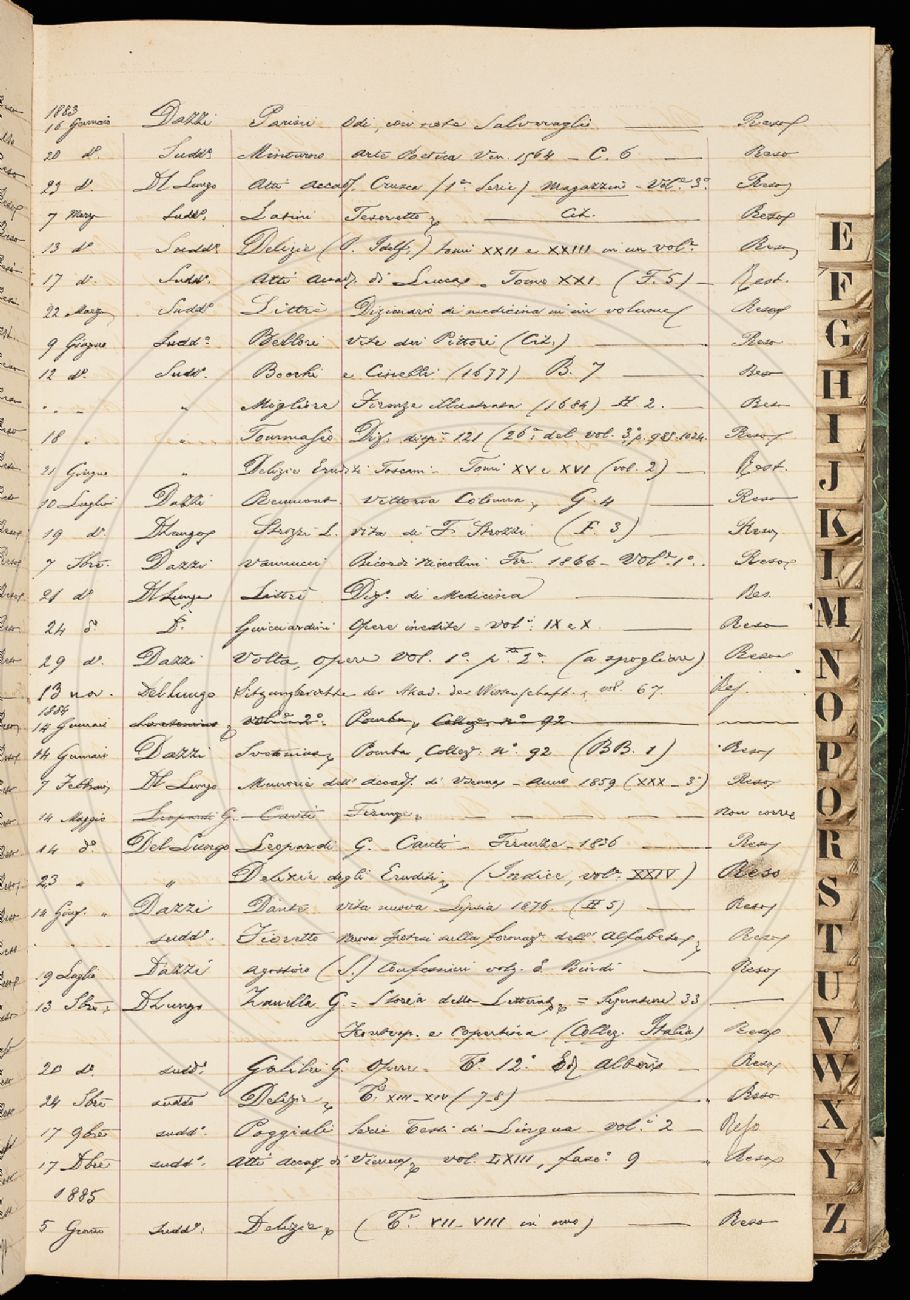 1883
16 Gennaio Dazzi Parini Odi, con note Salveraglio Reso
20 do. Suddo. Minturno Arte Poetica Ven. 1564 - C. 6 Reso
23 do. Dl Lungo Atti accad. Crusca (1a Serie) Magazzini - Vole. 3o. Reso
7 Marzo Suddo. Latini Tesoretto Cit. Reso
13 do. Suddo. Delizie (P. Idelf.) tomi XXII e XXIII in un vole. Reso
17 do. Suddo. Atti accad. di Lucca - Tomo XXI. (F. 5) Rest.
22 Marzo Suddo. Littré Dizionario di medicina in un volume Reso
9 Giugno Suddo. Bellori Vite dei Pittori (Cit.) Reso
12 do. Suddo. Bocchi e Cinelli (1677) B. 7 Reso
" " " Migliore Firenze illustrata (1684) H 2. Reso
18 " " Tommaséo Diz. disp. 121 (26a del vol. 3o, p. 985-1024. Reso
21 Giugno " Delizie Eruditi Toscani - Tomi XV e XVI (vol. 2) Rest.
10 Luglio Dazzi Reumont Vittoria Colonna, G. 4 Reso
19 do. DLungo Strozzi L. Vita di F. Strozzi (F. 3) Reso
7 7bre. Dazzi Vannucci Ricordi Niccolini Fir. 1866 - Vole. 1o. Reso
21 do. Dl Lungo Littré Diz. di Medicina Res.
24 do D. Guicciardini Opere inedite = vole. IX e X. Reso
29 do. Dazzi Volta, opere vol. 1o. pte 2a (a spogliare) Reso
13 nov. Del Lungo Sitzungberichte der Akad. der Wissenschaft., vol. 67. Rej
1884
14 Gennaio Svetonius vole. 2o. Pomba, Collez. no 92
14 Gennaio Dazzi Svetonius, Pomba, Collez. no. 92 (BB. 1) Reso
7 Febbraio Dl Lungo Memorie dell' accad. di Vienna - Anno 1859 (XXX - 3o) Reso
14 Maggio Leopardi G. - Canti - Firenze, non corre
14 do. Del Lungo Leopardi G. Canti - Firenze - 1836 Reso
23 " " Delizie degli Eruditi, (Indice, vole. XXIV) Reso
14 Giug. " Dazzi Dante Vita nuova Lipsia 1876. (H 5) Reso
suddo. Fioretto nuova Ipotesi sulla formaz. dell' Alfabeto Reso
19 Luglio Dazzi Agostino (S.) Confessioni volg. E. Bindi Reso
13 8bre, DLungo Zanella G = Storia della Letterat. = Segnature 33
Frontesp. e Copertina (Collez. Italia) Reso
20 do. suddo. Galilei G. Opere. To. 12o. Ediz Albèri Reso
24 8bre suddo Delizie, To. XIII - XIV (7-8) Reso
17 9bre suddo. Poggiali Serie Testi di Lingua - vole. 2 Reso
17 Dbre suddo. Atti accad di Vienna, vol. LXIII, fasco. 9 Reso
1885
5 Genno suddo. Delizie, (To. VII-VIII in uno) Reso
E
F
G
H
I
J
K
L
M
N
O
P
Q
R
S
T
U
V
W
X
Y
Z